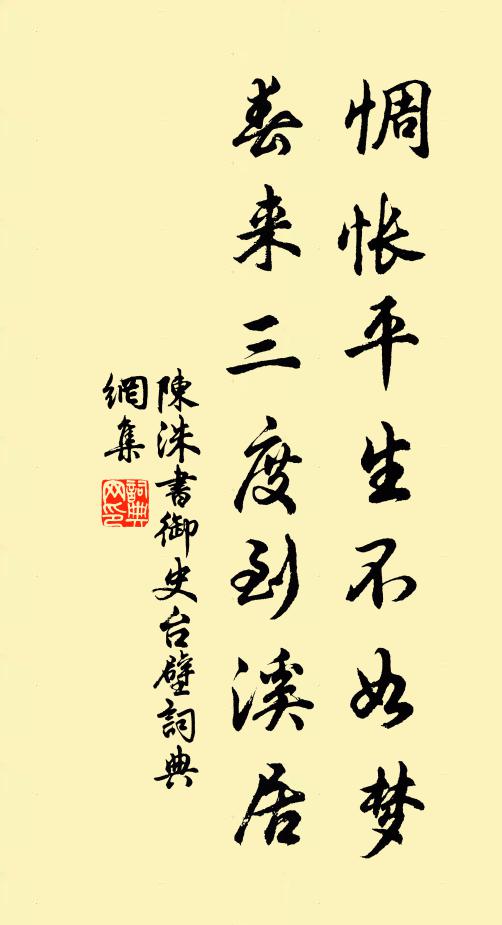 惆怅平生不如梦
春来三度到溪居
陳洙書御史台壁詞典
網集
詞典
网印